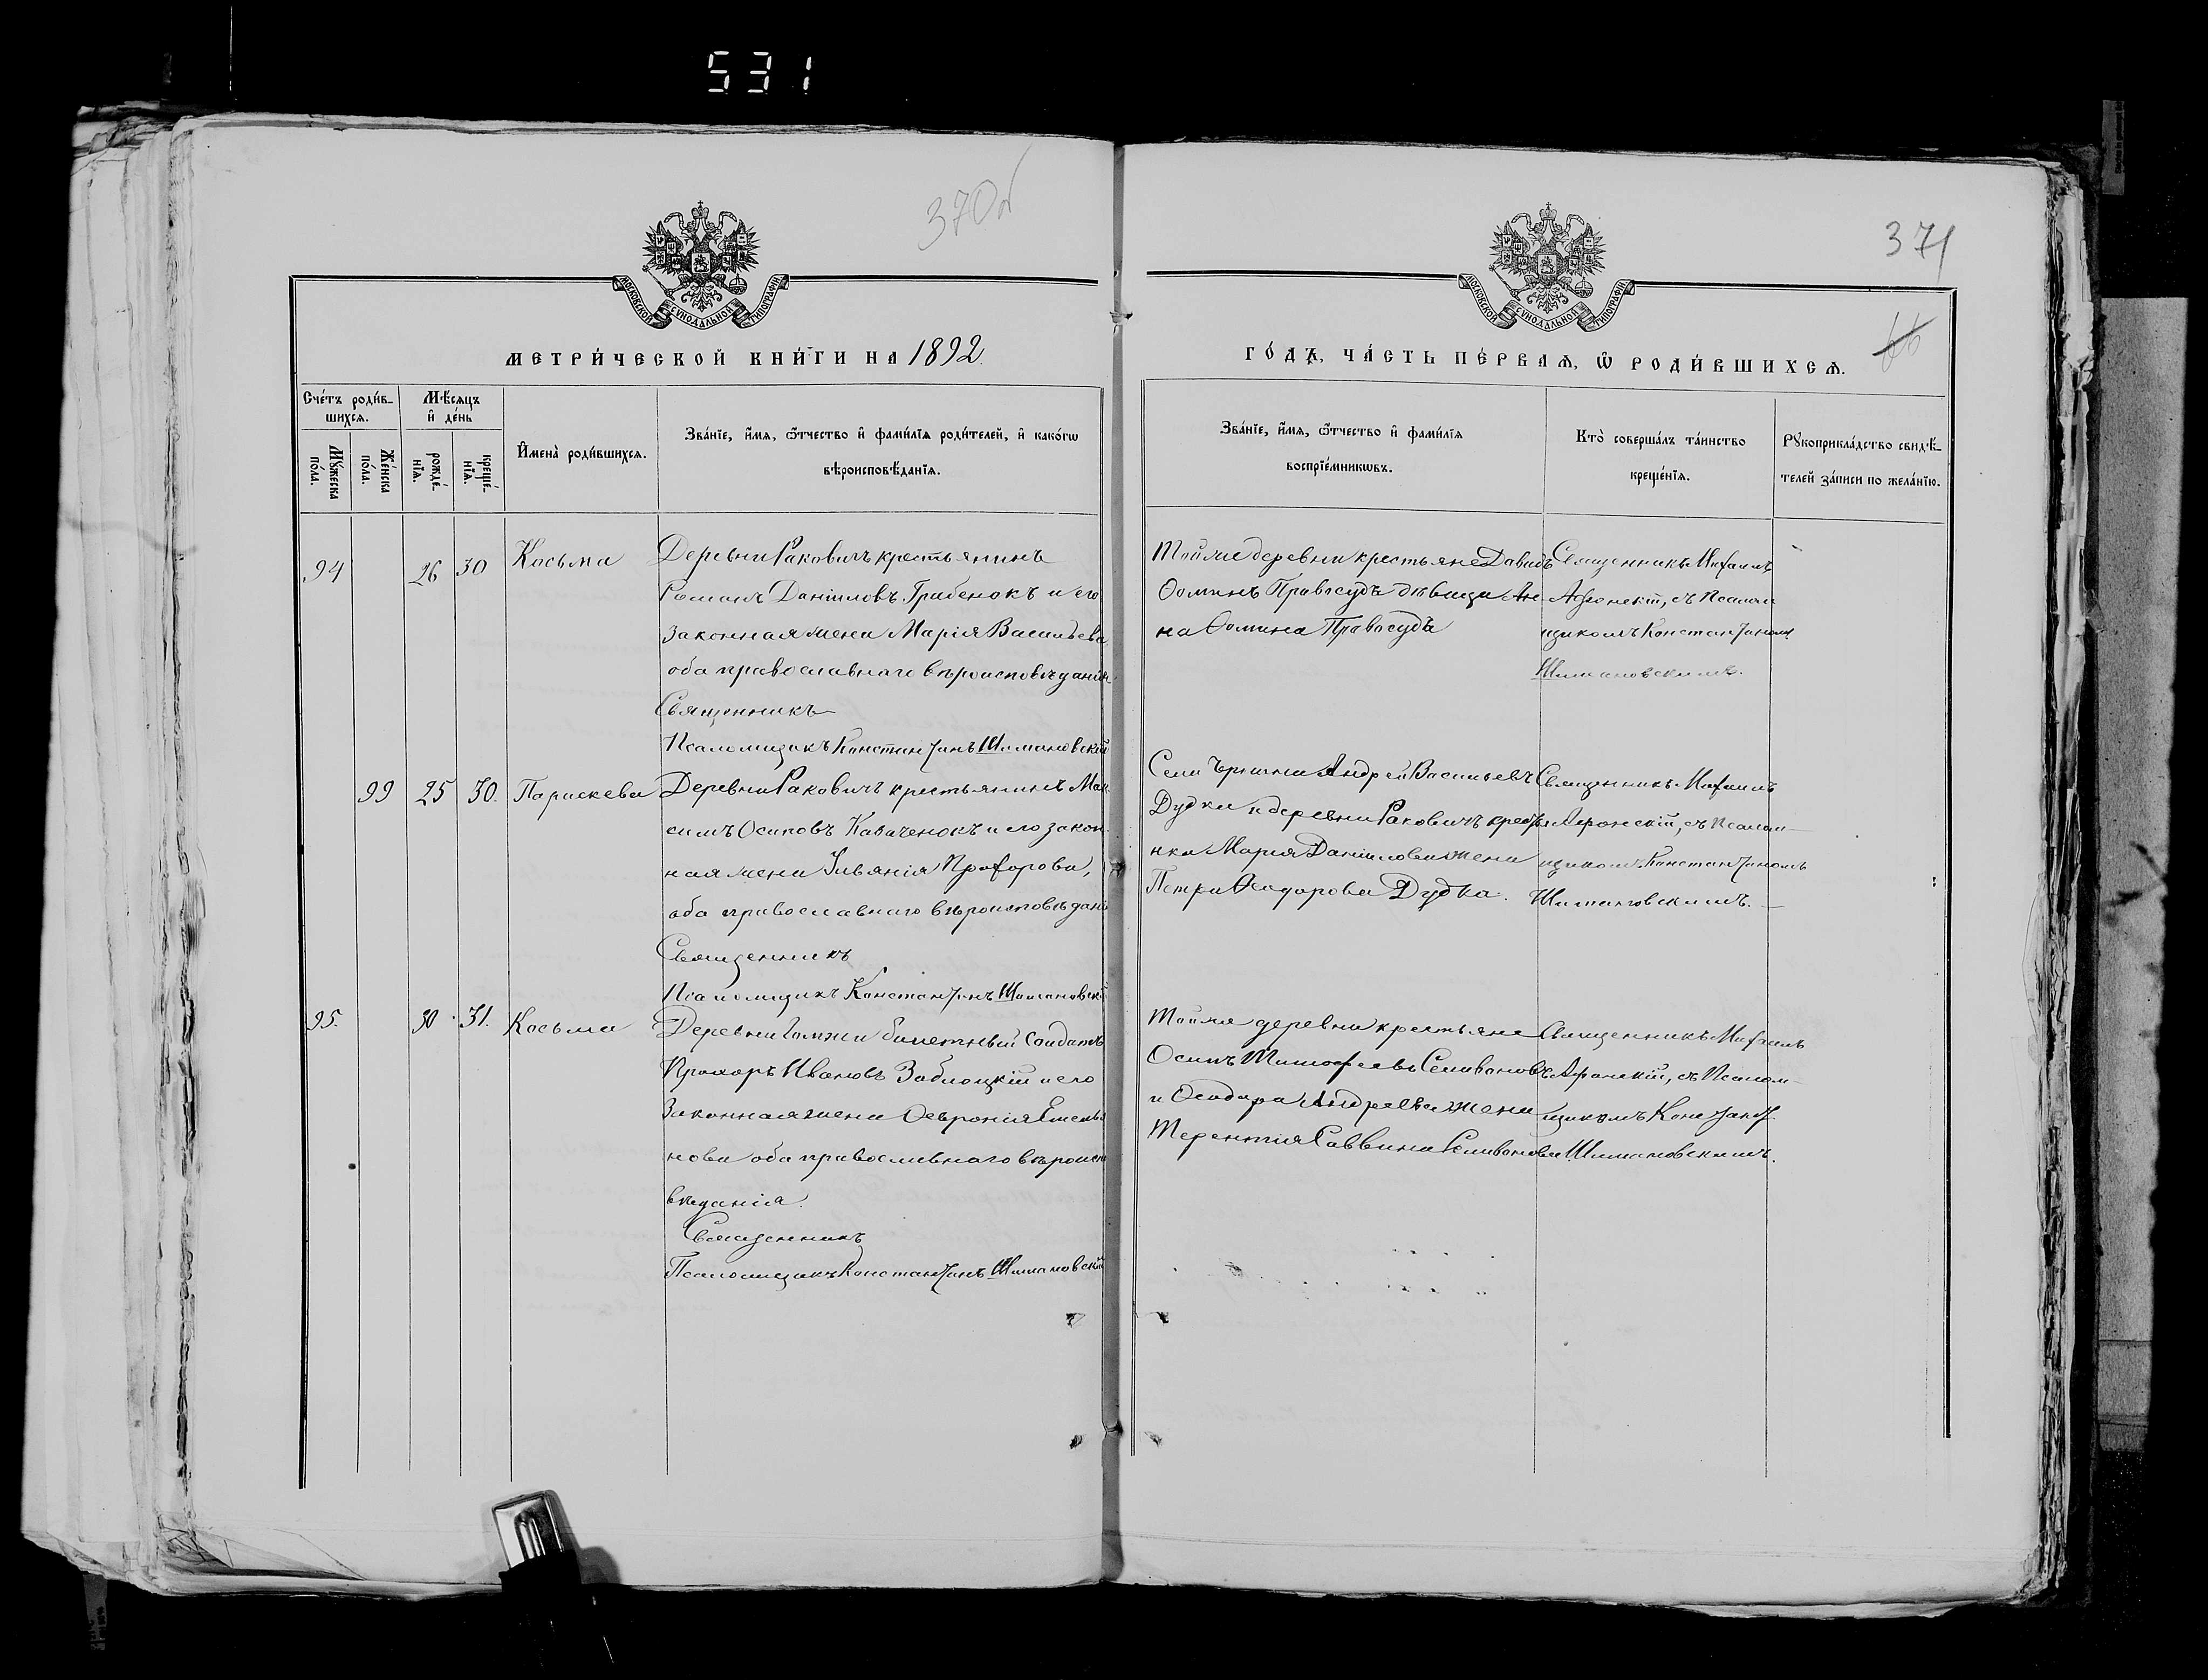 531
370об
371
66
МОСКОВСКОЙ СѴНОДАЛЬНОЙ ТИПОГРАФІИ
МОСКОВСКОЙ СѴНОДАЛЬНОЙ ТИПОГРАФІИ
МЕТРИ́ЧЕСКОЙ КНИ́ГИ НА 1892.
ГО́ДЪ, ЧА́СТЬ ПЕ́РВАѦ, Ѡ҆ РОДИ́ВШИХСѦ.
Сче́тъ роди́в-
шихсѧ.
Мꙋ́жеска по́ла.
Же́нска по́ла.
Мѣ́сѧцъ
и҆ де́нь
рожде́-
нїѧ.
креще́-
нїѧ.
И҆мена̀ роди́вшихсѧ.
Зва́нїе, и҆́мѧ, ѻ҆́тчество и҆ фами́лїѧ роди́телей, и҆ како́гѡ
вѣроисповѣ́данїѧ.
Зва́нїе, и҆́мѧ, ѻ҆́тчество и҆ фами́лїѧ
воспрїе́мникѡвъ.
Кто̀ соверша́лъ та́инство
креще́нїѧ.
Рꙋкоприкла́дство свидѣ́-
телей за́писи по жела́нїю.
94
26
30
Косьма
Деревни Раковичъ крестьянинъ
Романъ Даніиловъ Грибенокъ и его
законная жена Марія Васильева
оба православнаго вѣроисповѣданія
Священникъ
Псаломщикъ Константинъ Шимановскій
Тойже деревни крестьяне Давидъ
Ѳоминъ Правосудъ дѣвица Ан-
на Ѳомина Правосудъ
Священникъ Михаилъ
Афонскій, съ Псалом
щикомъ Константиномъ
Шимановскимъ.
99
25
30.
Параскева
Деревни Раковичъ крестьянинъ Мак
симъ Осиповъ Казаченокъ и его закон
ная жена Ульянія Прохорова,
оба православнаго вѣроисповѣдані
Священникъ
Псаломщикъ Константинъ Шимановскій
Села Андрей Васильевъ
Дудка и деревни Раковичъ кресть
нка Марія Даніилова жена
Петра Ѳеодорова Дудка.
Священникъ Михаилъ
Афонскій, съ Псалом-
щикомъ Константиномъ
Шимановскимъ.
95.
30
31.
Косьма
Деревни билетный Солдатъ
Прохоръ Ивановъ Заблоцкій и его
Законная жена Ѳевронія Емелья
нова оба православнаго вѣроиспо
вѣданія.
Священникъ
Псаломщикъ Константинъ Шимановскій
Тойже деревни крестьяне
Осипъ Тимофеевъ Селивановъ
и Ѳеодора Андреева жена
Терентія Саввина Селиванова
Священникъ Михаилъ
Афонскій, съ Псалом-
щикомъ Констант
Шимановскимъ.